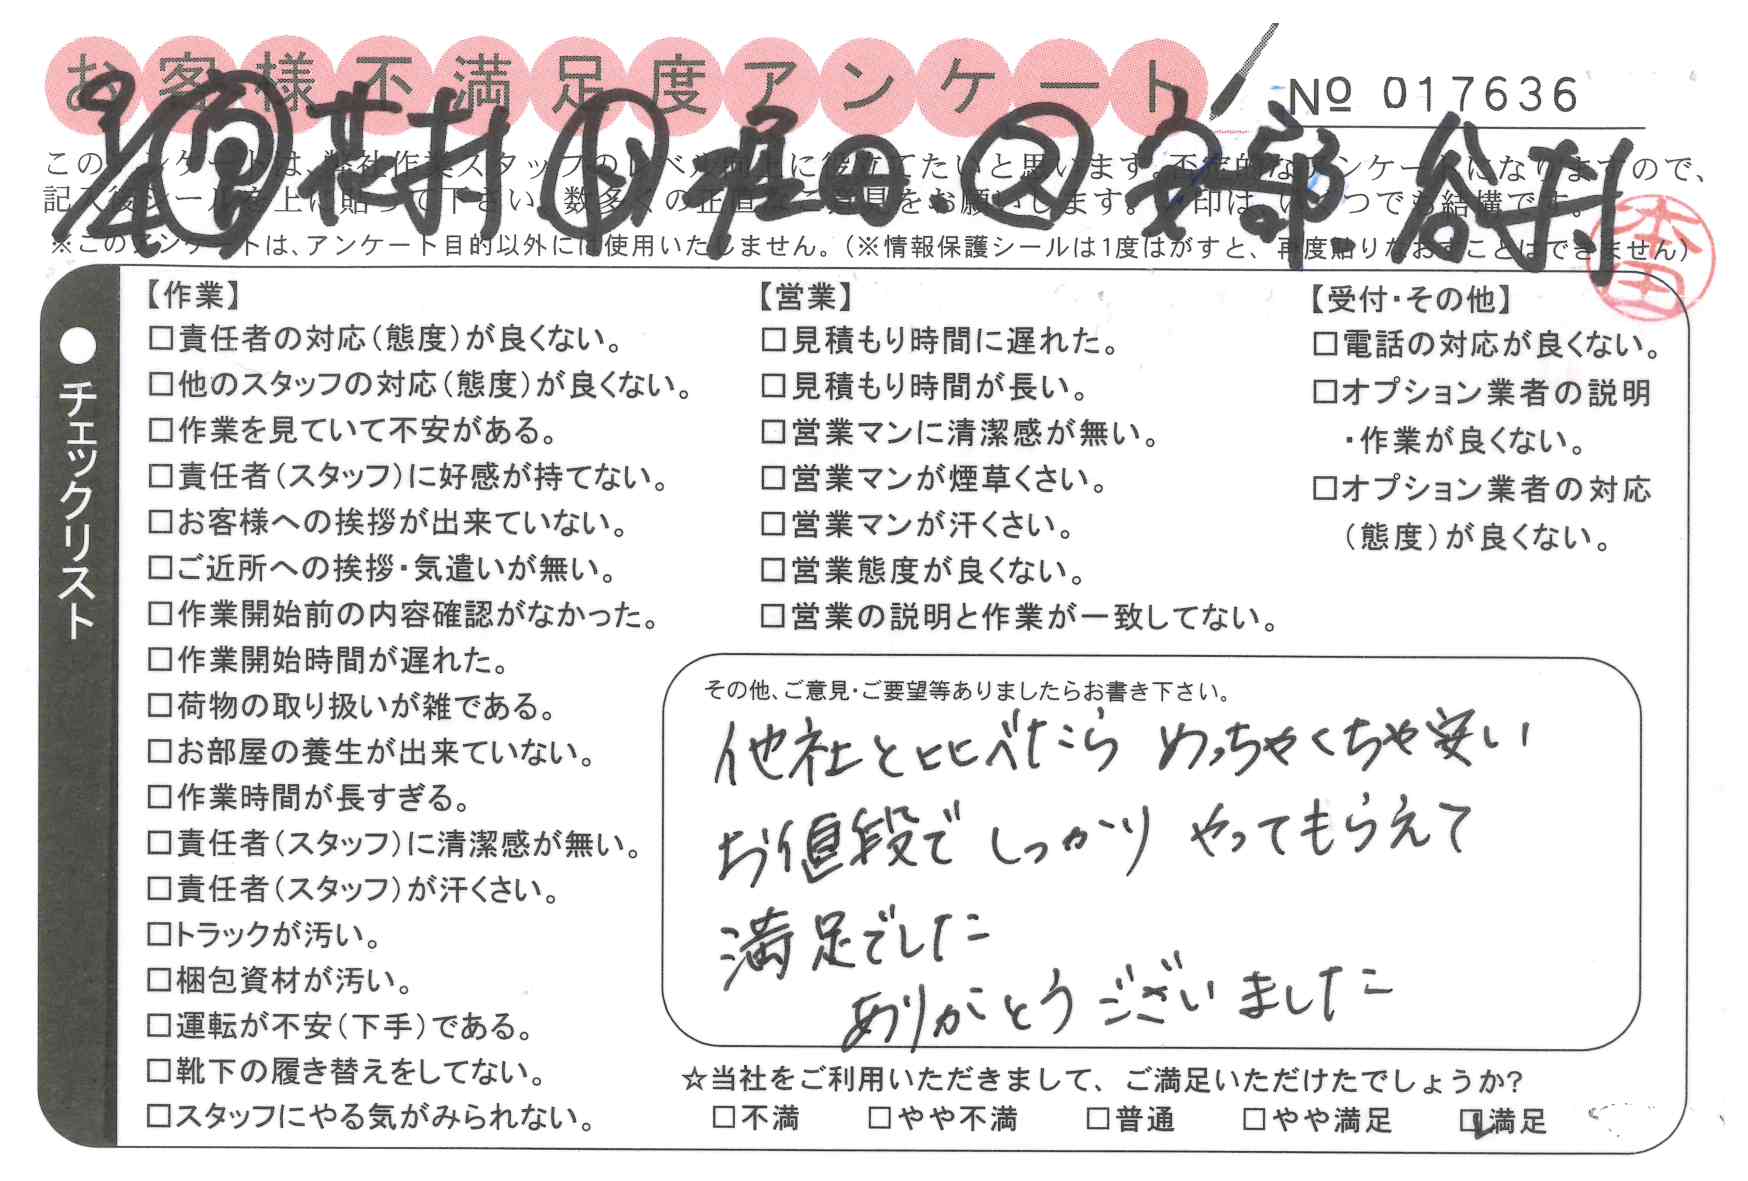 お客様不満足度アンケート
№ 017636
花村 堀田 安部 谷村
このアンケートは、弊社作業スタッフのレベル向上に役立てたいと思います。否定的なアンケートになりますので、
記入後シールを上に貼って下さい。数多くの正直なご意見をお願いします。レ印は、いくつでも結構です。
※このアンケートは、アンケート目的以外には使用いたしません。(※情報保護シールは1度はがすと、再度貼りなおすことはできません)
本田
●チェックリスト
【作業】
□責任者の対応(態度)が良くない。
□他のスタッフの対応(態度)が良くない。
□作業を見ていて不安がある。
□責任者(スタッフ)に好感が持てない。
□お客様への挨拶が出来ていない。
□ご近所への挨拶・気遣いが無い。
□作業開始前の内容確認がなかった。
□作業開始時間が遅れた。
□荷物の取り扱いが雑である。
□お部屋の養生が出来ていない。
□作業時間が長すぎる。
□責任者(スタッフ)に清潔感が無い。
□責任者(スタッフ)が汗くさい。
□トラックが汚い。
□梱包資材が汚い。
□運転が不安(下手)である。
□靴下の履き替えをしてない。
□スタッフにやる気がみられない。
【営業】
□見積もり時間に遅れた。
□見積もり時間が長い。
□営業マンに清潔感が無い。
□営業マンが煙草くさい。
□営業マンが汗くさい。
□営業態度が良くない。
□営業の説明と作業が一致してない。
【受付・その他】
□電話の対応が良くない。
□オプション業者の説明
・作業が良くない。
□オプション業者の対応
(態度)が良くない。
その他、ご意見・ご要望等ありましたらお書き下さい。
他社と比べたら めっちゃくちゃ安い
お値段で しっかり やってもらえて
満足でした
ありがとうございました
☆当社をご利用いただきまして、ご満足いただけたでしょうか?
□不満 □やや不満 □普通 □やや満足 ☑満足